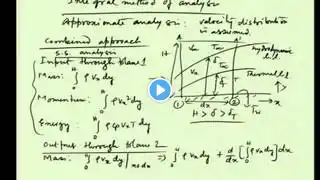 Integral method of analysis
Approximate analysis: velocity distribution is assumed.
Combined approach
s.s. analysis
Input through plane 1
Mass: ∫₀ᴴ ρ Vx dy
Momentum: ∫₀ᴴ ρ Vx² dy
Energy: ∫₀ᴴ ρ Cp Vx T dy
Output through plane 2
Mass: ∫₀ᴴ ρ Vx dy |x+dx ⇒ ∫₀ᴴ ρ Vx dy + d/dx [∫₀ᴴ ρ Vx dy] dx
H
Vx
T∞
Vx
T∞
Hydrodynamic b.l.
δ
δT
T
Thermal b.l.
1
dx
2
Tw
x
H > δ > δT